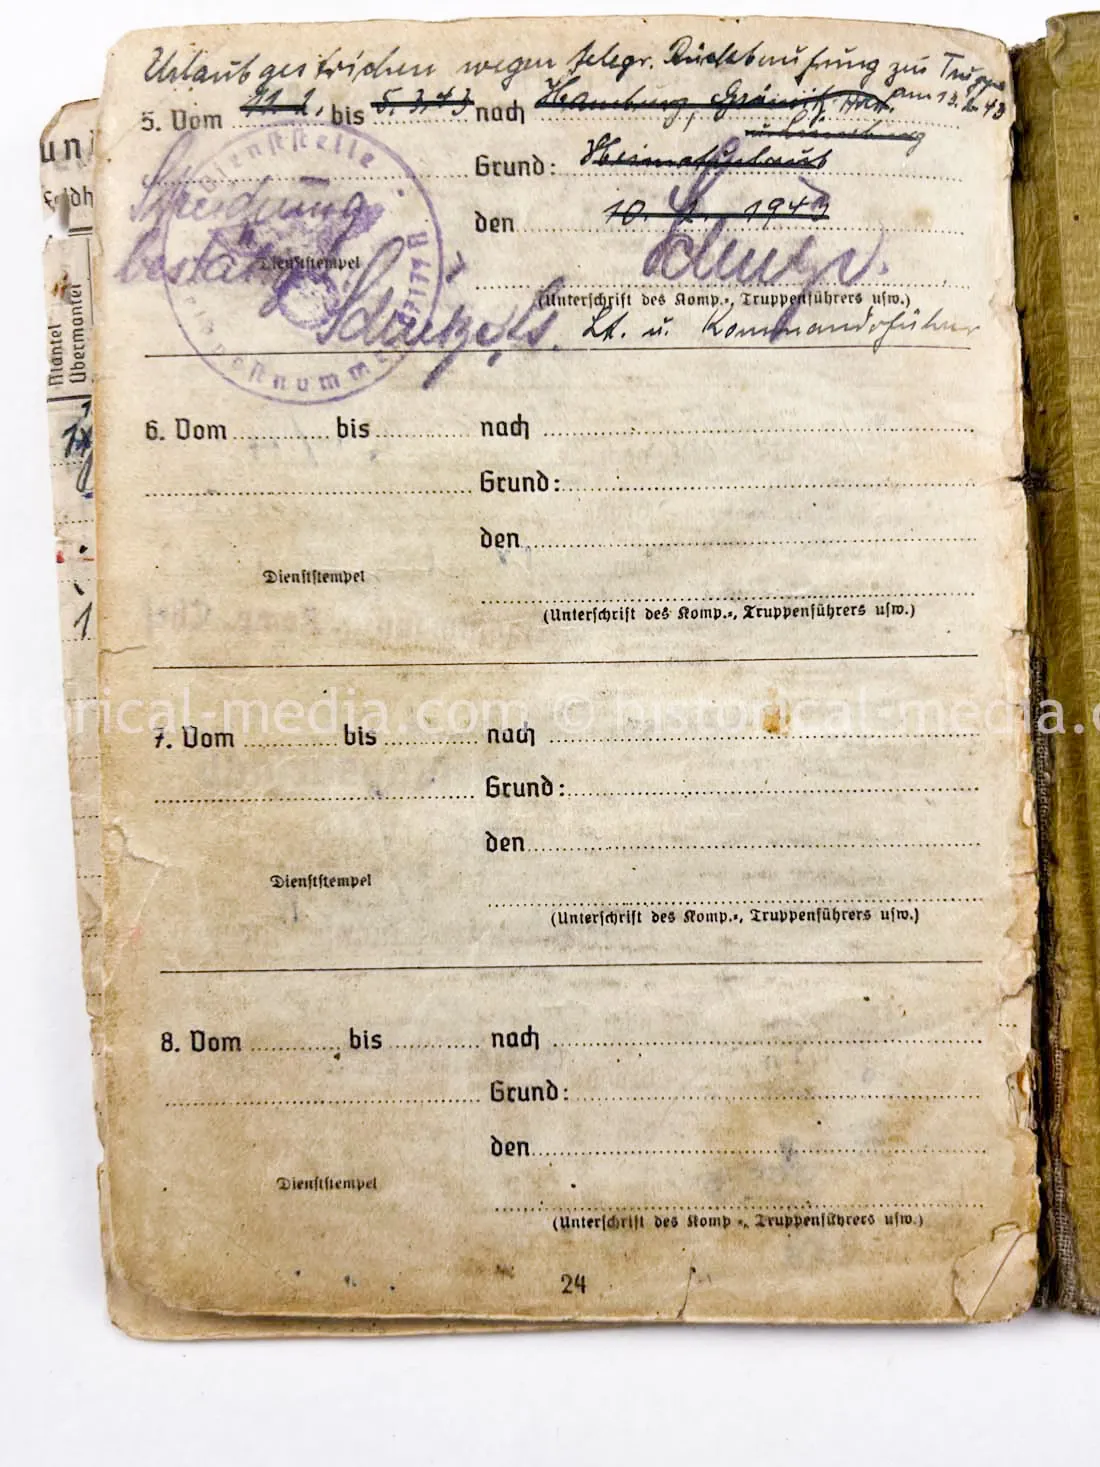 Urlaub gestrichen wegen telegr. Rückberufung zur Truppe
am 13.2.43
5. Vom 11.2. bis 5.3.43 nach Hamburg,
u. Lüneburg
Grund: Heimaturlaub
Dienststelle
Streichung
bestätigt
den 10. 2. 1943
Dienststempel
Feldpostnummer
(Unterschrift des Komp.-, Truppenführers usw.)
Lt. u. Kommandoführer
6. Vom bis nach
Grund:
den
Dienststempel
(Unterschrift des Komp.-, Truppenführers usw.)
7. Vom bis nach
Grund:
den
Dienststempel
(Unterschrift des Komp.-, Truppenführers usw.)
8. Vom bis nach
Grund:
den
Dienststempel
(Unterschrift des Komp.-, Truppenführers usw.)
24
Mantel
Übermantel
1
torical-media.com © historical-media.c